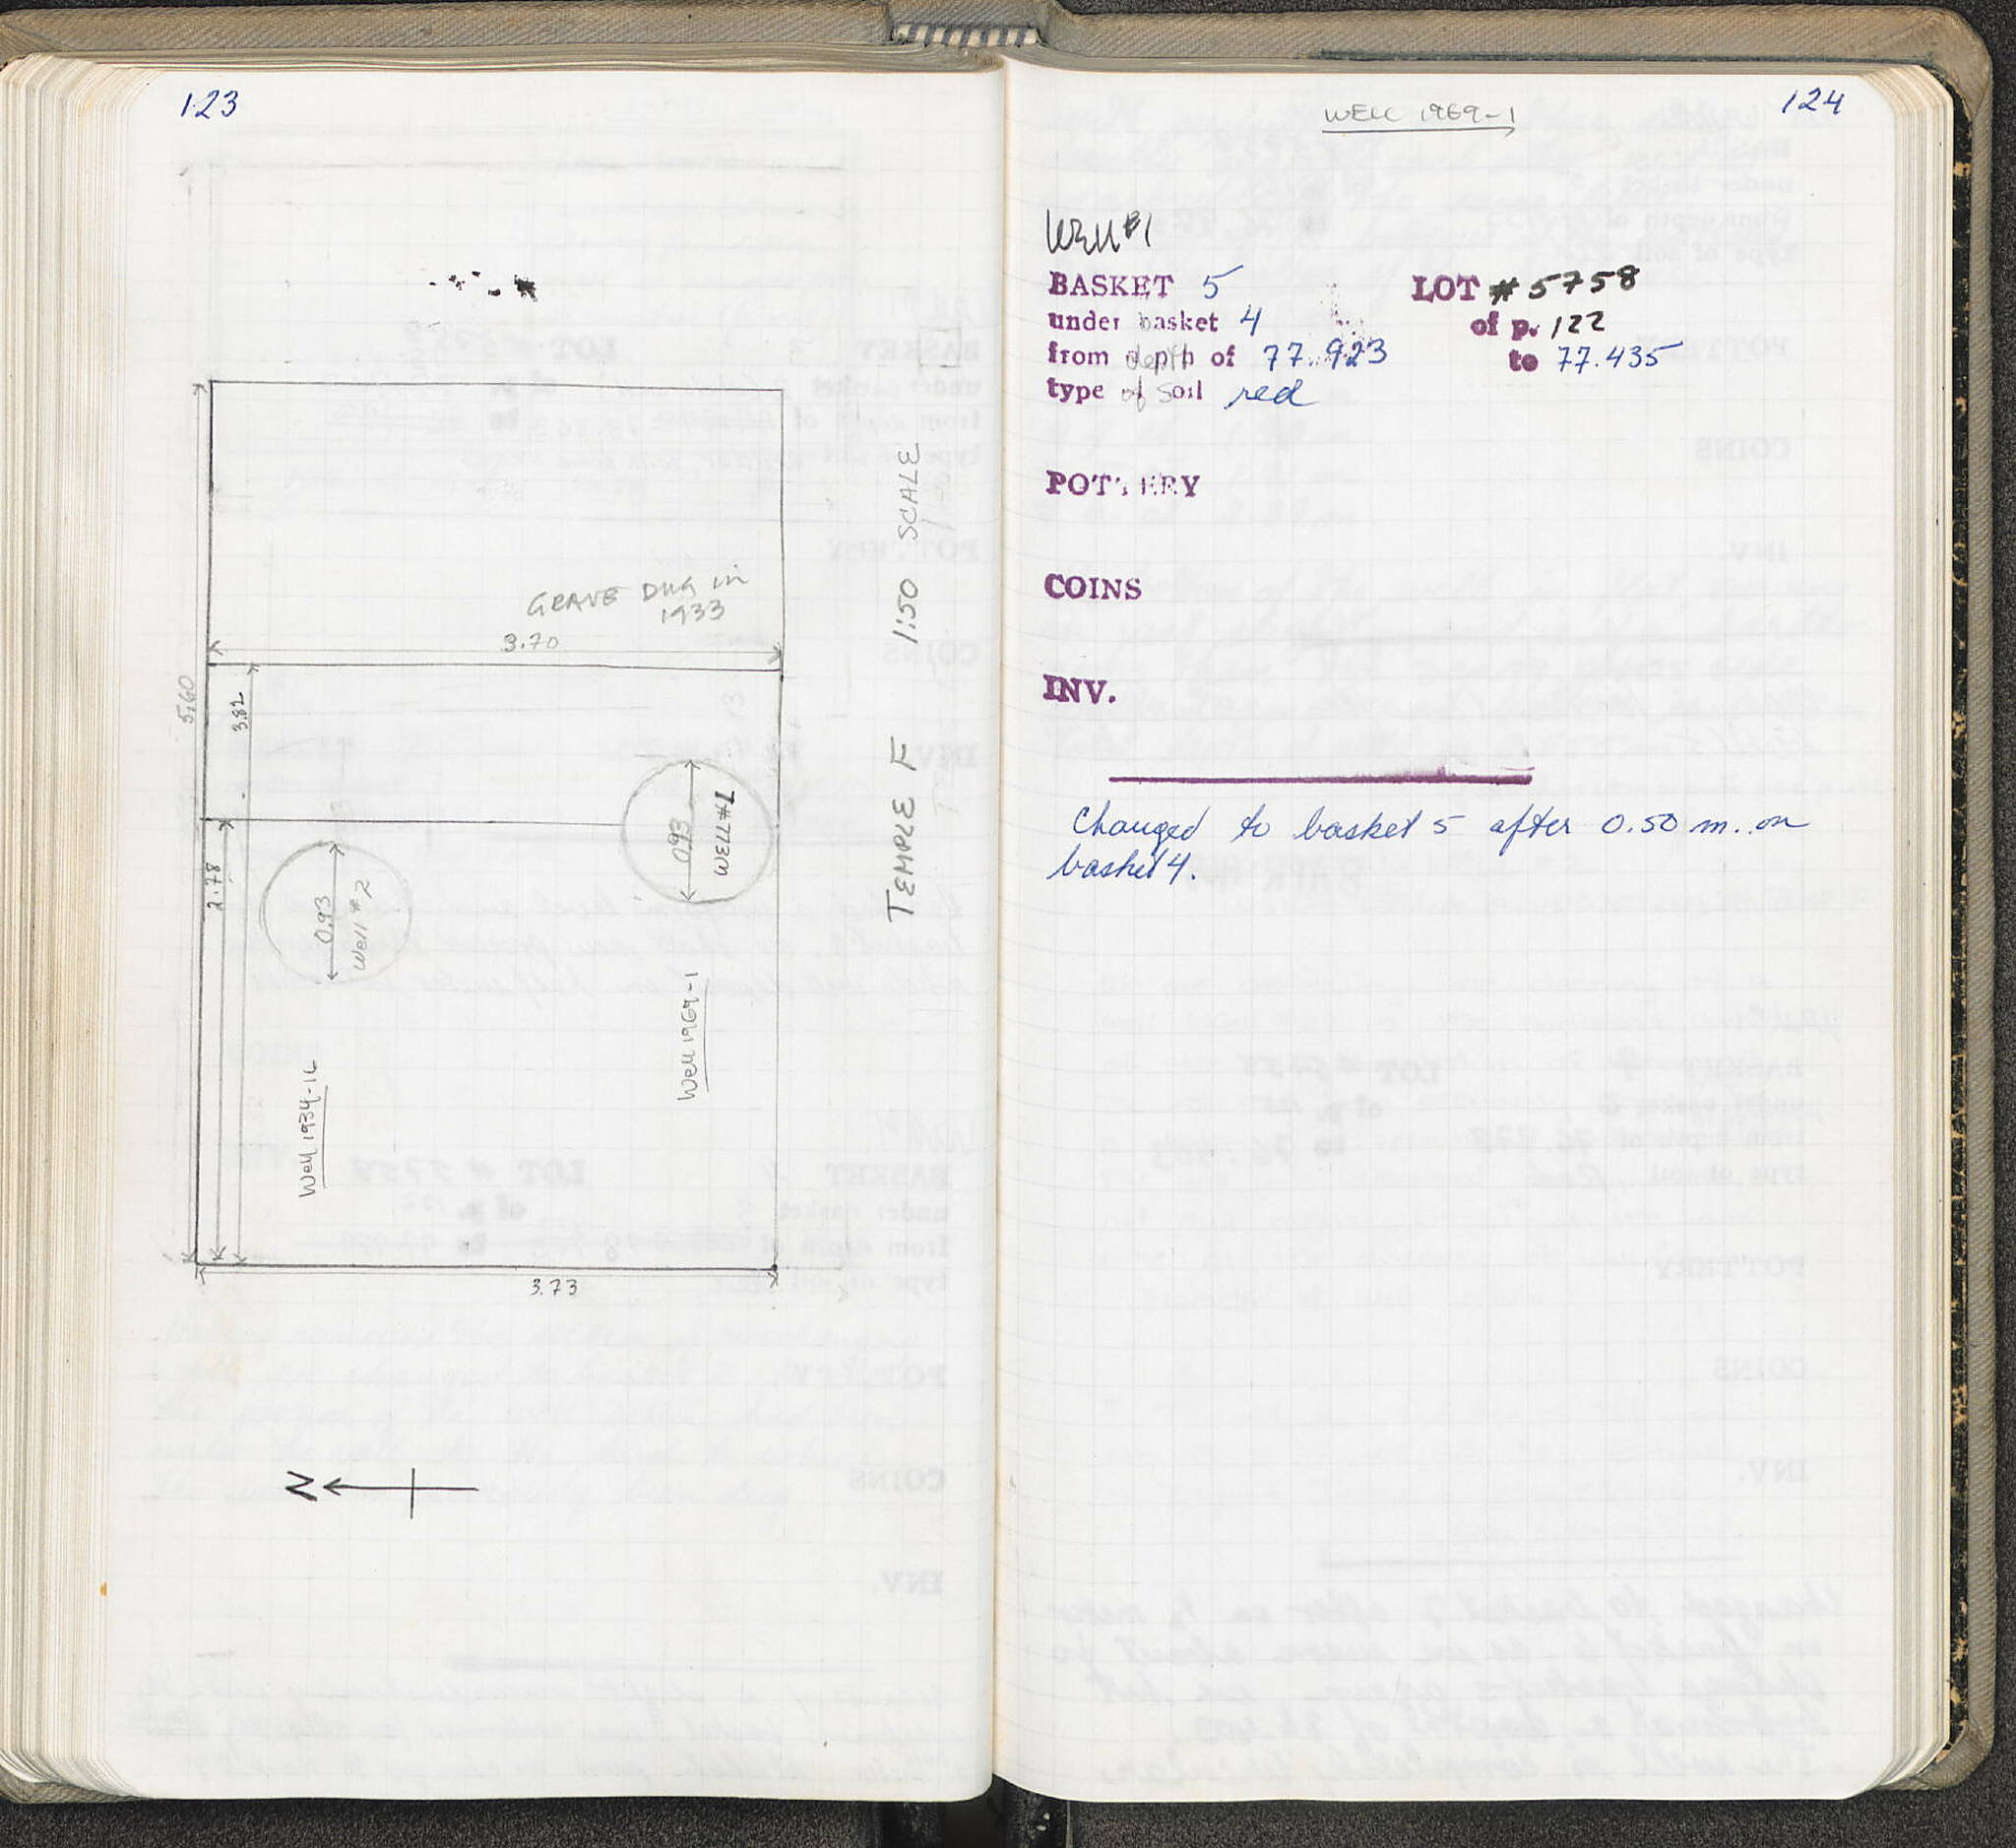 123
GRAVE DUG in
1933
3.70
5.60
3.82
2.78
0.93
Well #2
0.93
WELL #1
Well 1934-1
Well 1969-1
3.73
TEMPLE F 1:50 SCALE
N
124
WELL 1969-1
Well #1
BASKET 5 LOT #5758
under basket 4 of p. 122
from depth of 77.923 to 77.435
type of soil red
POTTERY
COINS
INV.
Changed to basket 5 after 0.50 m. on
basket 4.